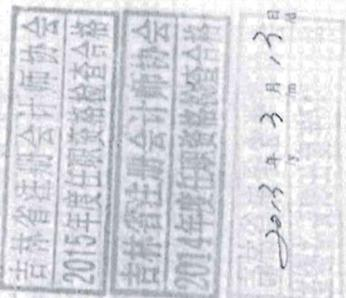 吉林省注册会计师协会
2015年度任职资格检查合格
吉林省注册会计师协会
2014年度任职资格检查合格
2013年3月13日
y m d